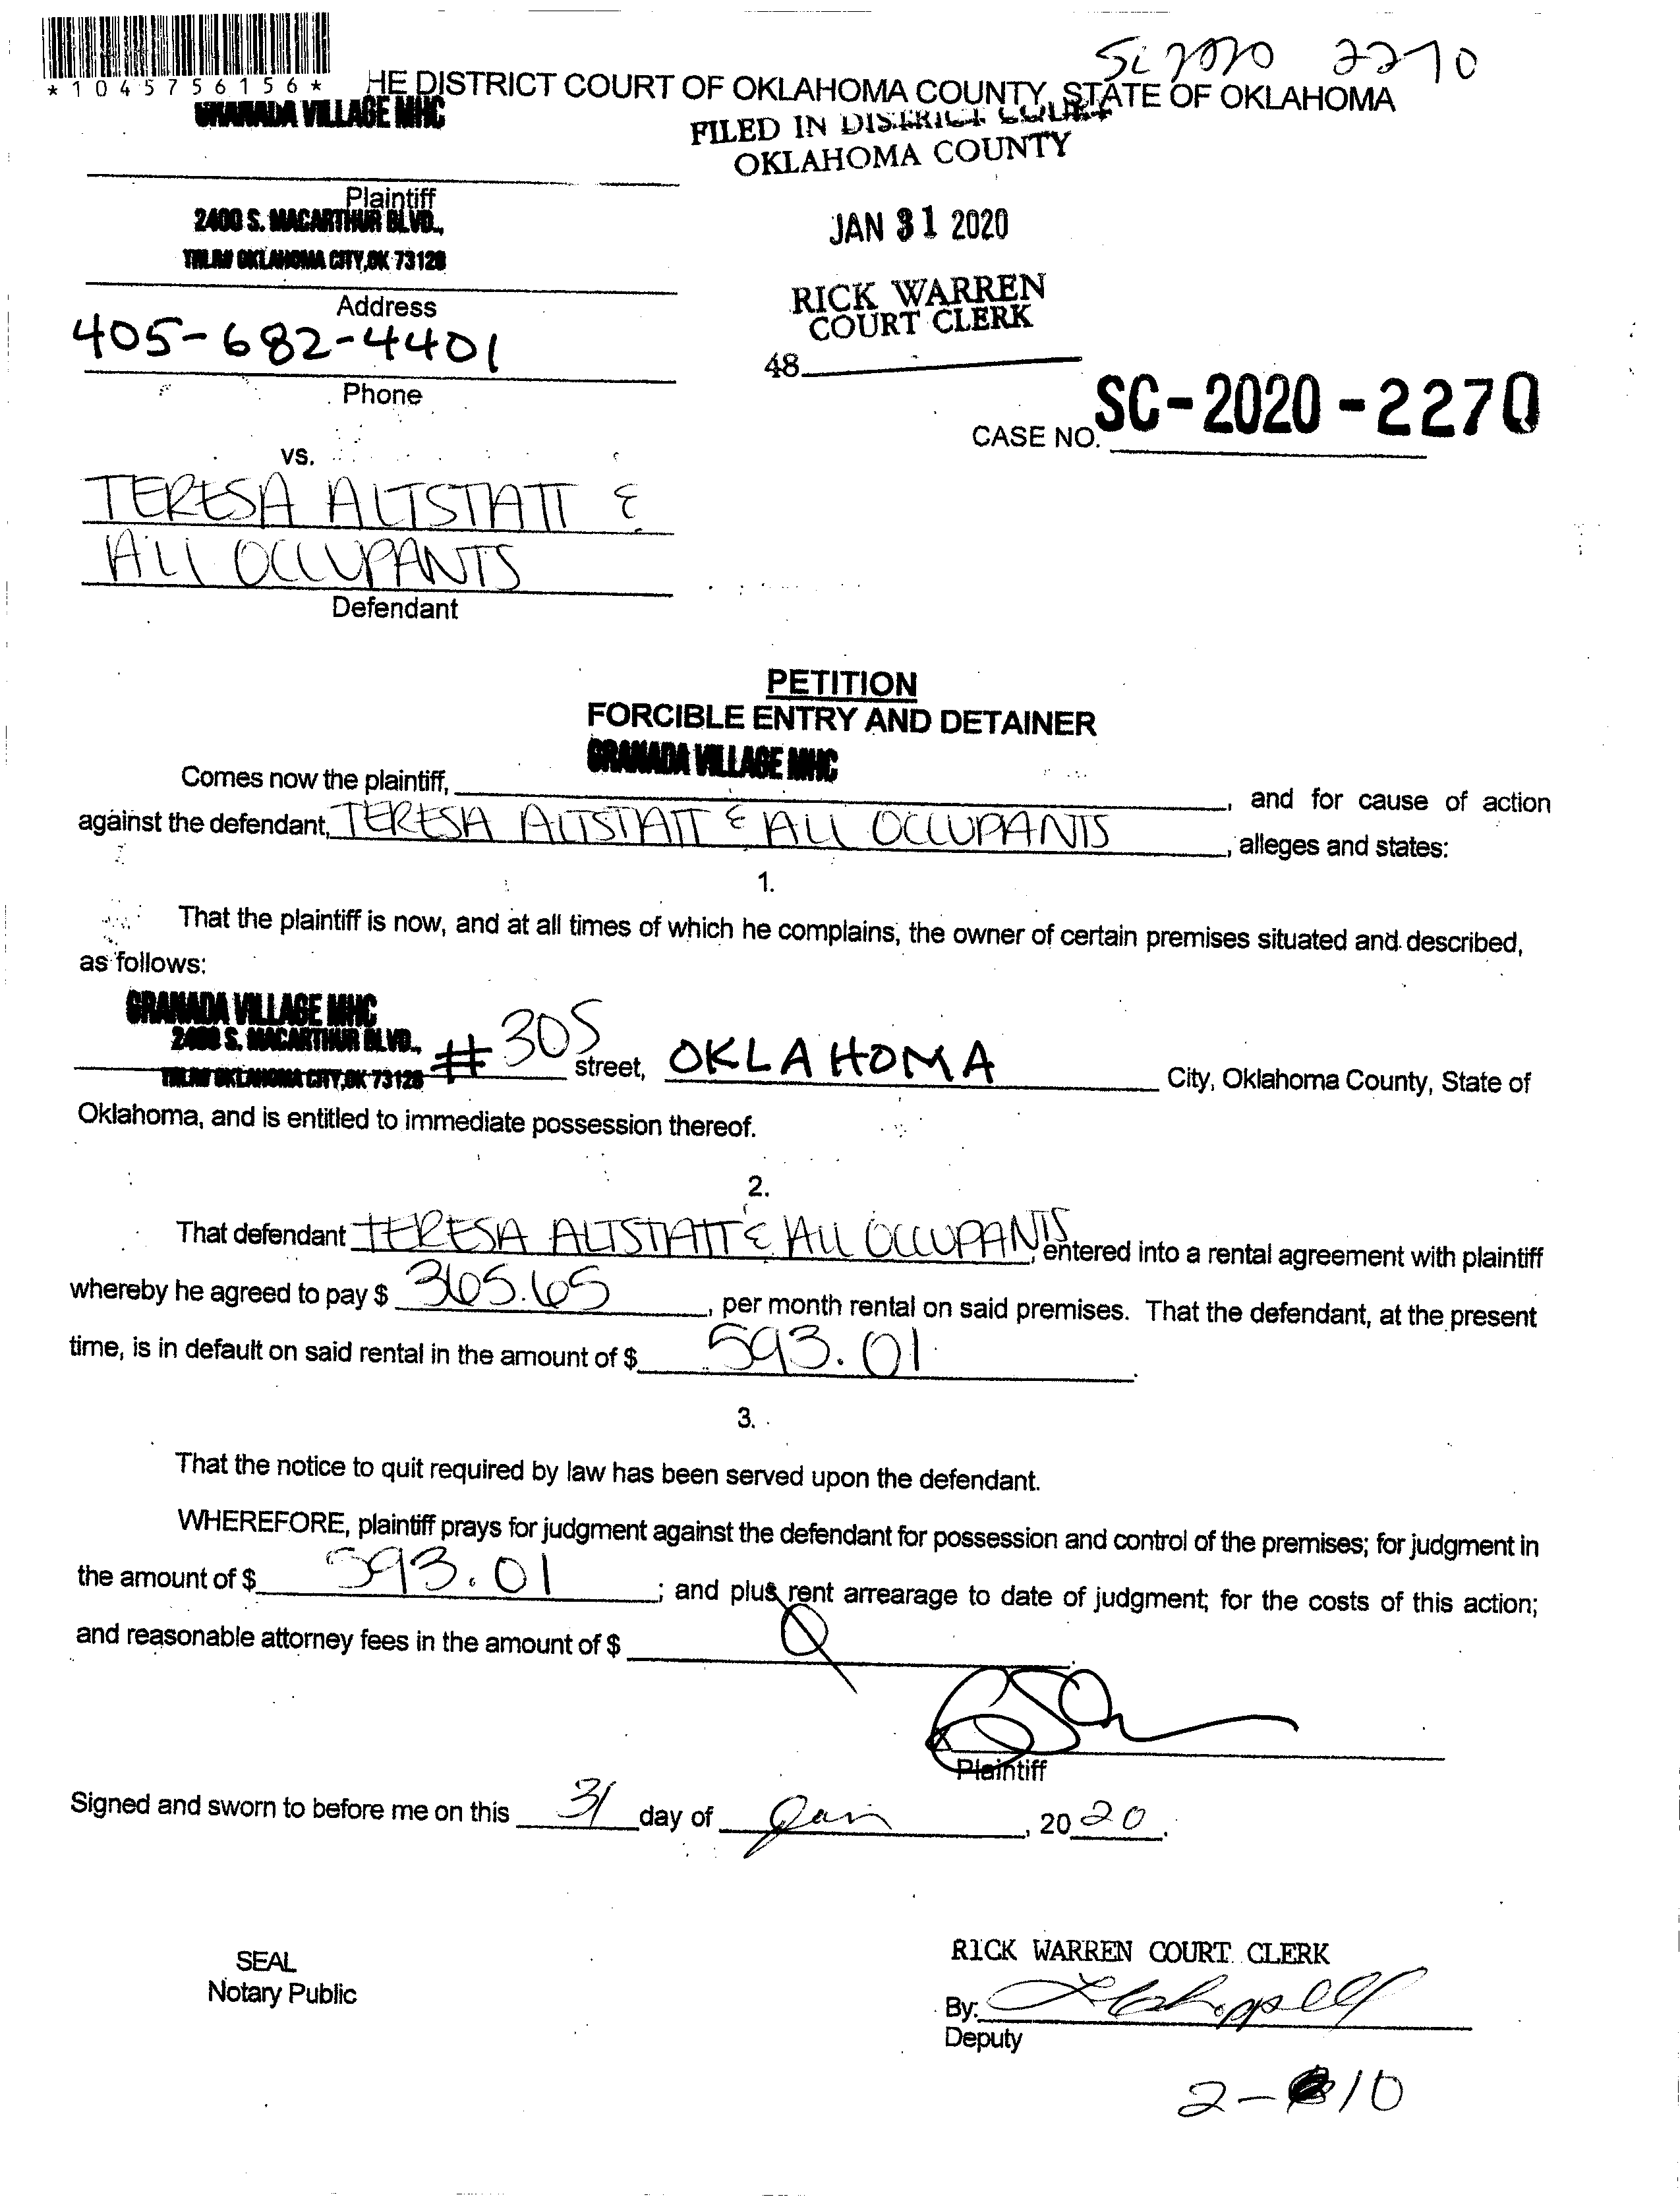 SC 2020 2270
*10457561 56*
HE DISTRICT COURT OF OKLAHOMA COUNTY, STATE OF OKLAHOMA
GRANADA VILLAGE MHC
FILED IN DISTRICT COURT
OKLAHOMA COUNTY
Plaintiff
2400 S. MACARTHUR BLVD.,
JAN 31 2020
OKLAHOMA CITY, OK 73128
RICK WARREN
COURT CLERK
Address
405-682-4401
48
Phone
CASE NO. SC-2020-2270
vs.
TERESA ALTSTATT &
ALL OCCUPANTS
Defendant
PETITION
FORCIBLE ENTRY AND DETAINER
Comes now the plaintiff, GRANADA VILLAGE MHC, and for cause of action
against the defendant, TERESA ALTSTATT & ALL OCCUPANTS, alleges and states:
1.
That the plaintiff is now, and at all times of which he complains, the owner of certain premises situated and described,
as follows:
GRANADA VILLAGE MHC
2400 S. MACARTHUR BLVD.,
OKLAHOMA CITY, OK 73128 #305 street, OKLAHOMA City, Oklahoma County, State of
Oklahoma, and is entitled to immediate possession thereof.
2.
That defendant TERESA ALTSTATT & ALL OCCUPANTS, entered into a rental agreement with plaintiff
whereby he agreed to pay $ 365.65, per month rental on said premises. That the defendant, at the present
time, is in default on said rental in the amount of $ 593.01.
3.
That the notice to quit required by law has been served upon the defendant.
WHEREFORE, plaintiff prays for judgment against the defendant for possession and control of the premises; for judgment in
the amount of $ 593.01; and plus rent arrearage to date of judgment; for the costs of this action;
and reasonable attorney fees in the amount of $ 0.
X
Plaintiff
Signed and sworn to before me on this 31 day of Jan, 2020.
SEAL
Notary Public
RICK WARREN COURT CLERK
By:
Deputy
2-10